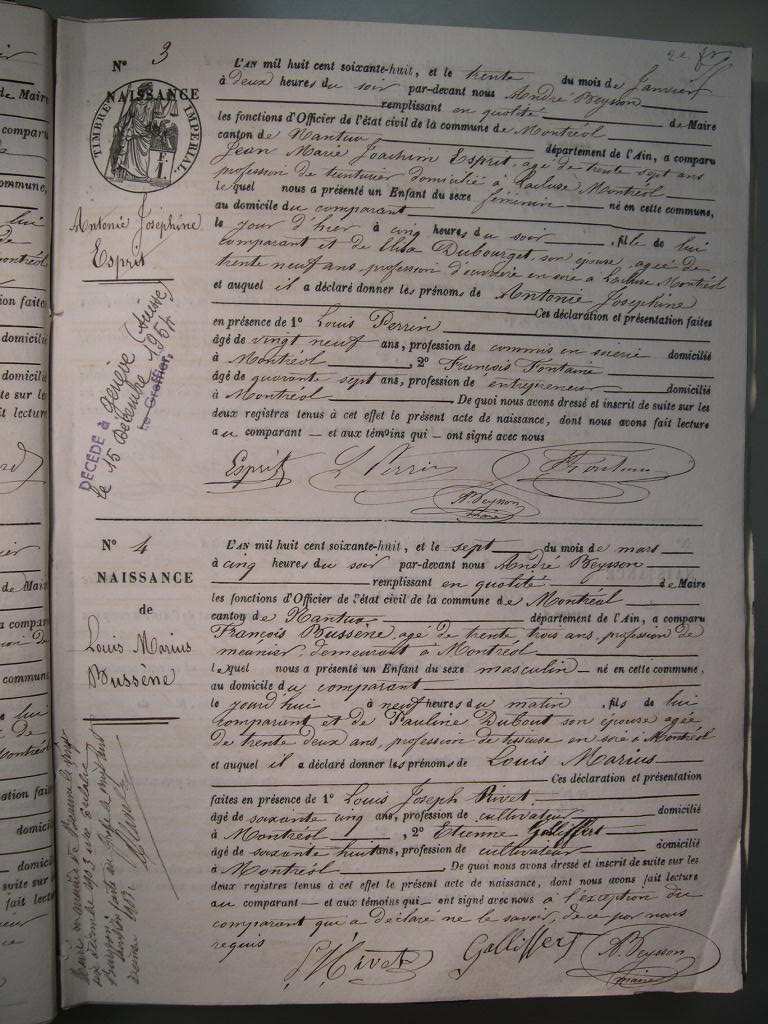 2e fr
N° 3
NAISSANCE
TIMBRE IMPERIAL
F. 1.
Antonie Joséphine
Esprit
DECEDE à Genève (Suisse)
le 15 Décembre 1954
Le Greffier,
L'AN mil huit cent soixante-huit, et le trente du mois de Janvier
à deux heures du soir par-devant nous André Beysson
remplissant en qualité de Maire
les fonctions d'Officier de l'état civil de la commune de Montréal
canton de Nantua département de l'Ain, a comparu
Jean Marie Joachim Esprit, agé de trente sept ans
profession de teinturier domicilié à Lacluse Montréal
lequel nous a présenté un Enfant du sexe féminin né en cette commune,
au domicile du comparant
le jour d'hier à cinq heures du soir, fille de lui
comparant et de Elisa Dubourget, son épouse, agée de
trente neuf ans profession d'ouvrière en soie à Lacluse Montréal
et auquel il a déclaré donner les prénoms de Antonie Joséphine
Ces déclaration et présentation faites
en présence de 1° Louis Perrin
âgé de vingt neuf ans, profession de commis en soierie domicilié
à Montréal, 2° François Fontaine
âgé de quarante sept ans, profession de entrepreneur domicilié
à Montréal De quoi nous avons dressé et inscrit de suite sur les
deux registres tenus à cet effet le présent acte de naissance, dont nous avons fait lecture
au comparant — et aux témoins qui — ont signé avec nous
Esprit L Perrin Fontaine
A. Beysson
maire
N° 4
NAISSANCE
de
Louis Marius
Bussène
L'AN mil huit cent soixante-huit, et le sept du mois de mars
à cinq heures du soir par-devant nous André Beysson
remplissant en qualité de Maire
les fonctions d'Officier de l'état civil de la commune de Montréal
canton de Nantua département de l'Ain, a comparu
François Bussène, agé de trente trois ans, profession de
meunier, demeurant à Montréal
lequel nous a présenté un Enfant du sexe masculin — né en cette commune,
au domicile du comparant
le jourd'hui à neuf heures du matin, fils de lui
comparant et de Pauline Dubout son épouse agée
de trente deux ans, profession de tisseuse en soie à Montréal
et auquel il a déclaré donner les prénoms de Louis Marius
Ces déclaration et présentation
faites en présence de 1° Louis Joseph Rivet
âgé de soixante cinq ans, profession de cultivateur domicilié
à Montréal, 2° Etienne Galliffert
âgé de soixante huit ans, profession de cultivateur domicilié
à Montréal De quoi nous avons dressé et inscrit de suite sur les
deux registres tenus à cet effet le présent acte de naissance, dont nous avons fait lecture
au comparant — et aux témoins qui — ont signé avec nous à l'exception du
comparant qui a déclaré ne le savoir, de ce par nous
requis
L Rivet Galliffert A. Beysson
maire